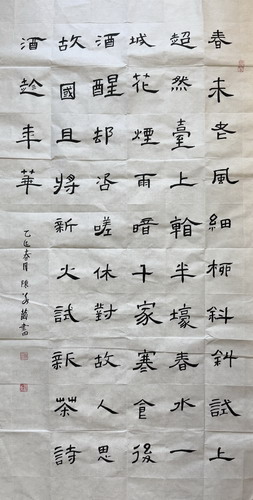 春未老風細柳斜斜試上
超然臺上看半壕春水一
城花煙雨暗千家寒食後
酒醒却咨嗟休對故人思
故國且將新火試新茶詩
酒趁年華
乙巳春月 陳書